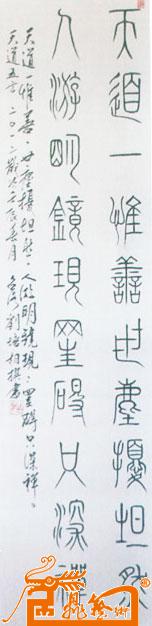 天道一惟善世塵擾坦然
人游明鏡現罣礙只深禪
天道一惟善世塵擾坦然人游明鏡現罣礙只深禪
天道五言二〇一二歲次壬辰春月
劉培相撰書